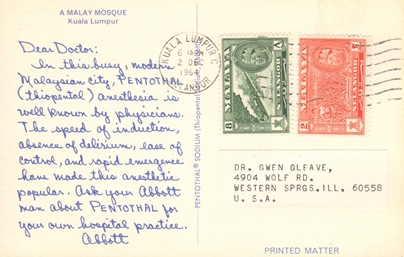 A MALAY MOSQUE
Kuala Lumpur
Dear Doctor:
In this busy, modern
Malaysian city, PENTOTHAL
(thiopental) anesthesia is
well known by physicians.
The speed of induction,
absence of delirium, ease of
control, and rapid emergence
have made this anesthetic
popular. Ask your Abbott
man about PENTOTHAL for
your own hospital practice.
Abbott
PENTOTHAL® SODIUM (Thiopental
KUALA LUMPUR C
2 DEC
1964
SELANGOR
MALAYA
SELANGOR
8
MALAYA
SELANGOR
2
DR. GWEN GLEAVE,
4904 WOLF RD.
WESTERN SPRGS.ILL. 60558
U. S. A.
PRINTED MATTER